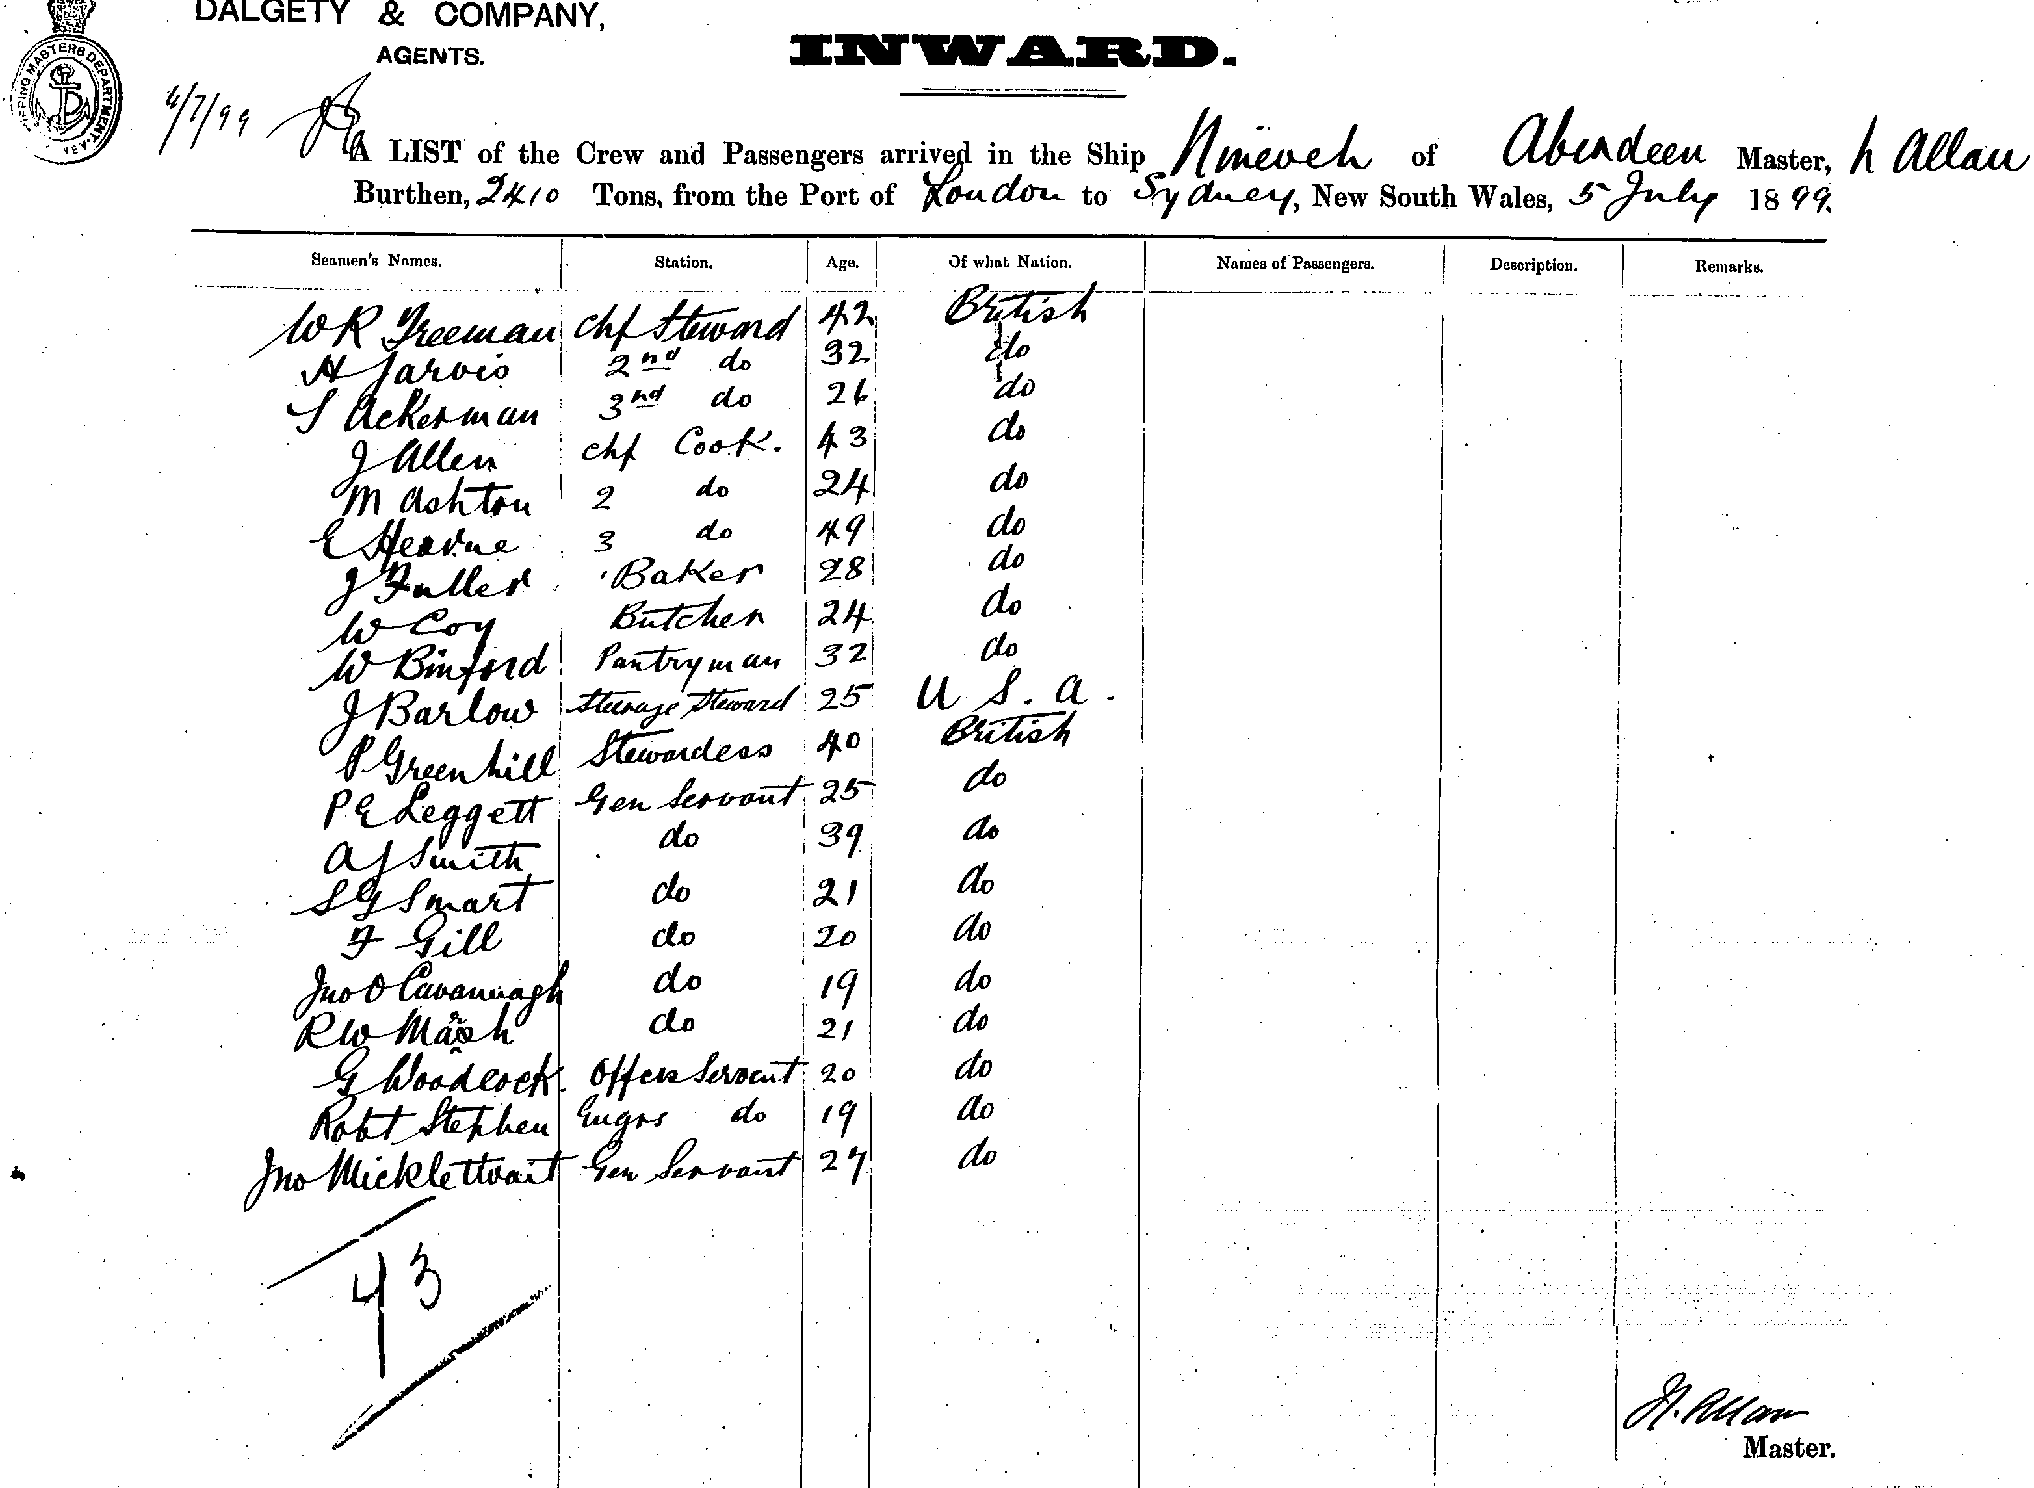 DALGETY & COMPANY,
AGENTS.
INWARD.
SHIPPING MASTERS DEPARTMENT
6/7/99
A LIST of the Crew and Passengers arrived in the Ship Nineveh of Aberdeen Master, N Allan
Burthen, 2410 Tons, from the Port of London to Sydney, New South Wales, 5 July 1899.
Seamen's Names. Station. Age. Of what Nation. Names of Passengers. Description. Remarks.
W R Freeman Chf Steward 42 British
H Jarvis 2nd do 32 do
S Ackerman 3nd do 26 do
J Allen Chf Cook. 43 do
M Ashton 2 do 24 do
E Hearne 3 do 49 do
J Fuller Baker 28 do
W Coy Butcher 24 do
W Binford Pantryman 32 do
J Barlow Steerage Steward 25 U. S. A.
P Greenhill Stewardess 40 British
P E Leggett Gen Servant 25 do
A J Smith do 39 do
S G Smart do 21 do
F Gill do 20 do
Jno O Cavannagh do 19 do
R W Marsh do 21 do
G Woodcock Offers Servent 20 do
Robt Stephen Engrs do 19 do
Jno Micklettwait Gen Servant 27 do
43
N. Allan
Master.